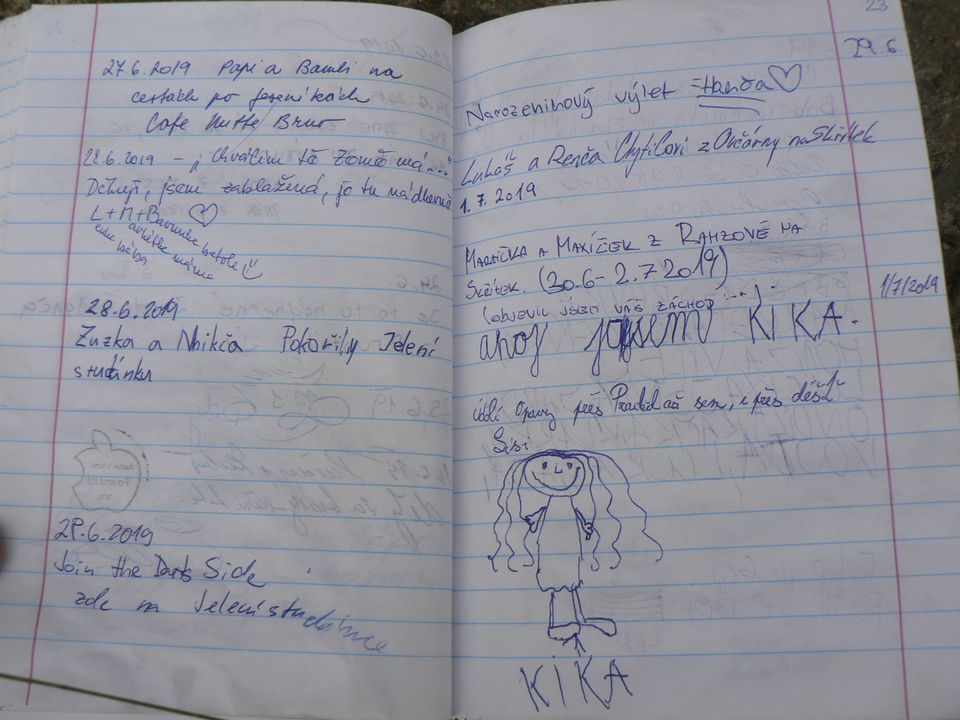 27.6.2019 Papi a Bambi na
cestách po Jeseníkách
Cafe Hütte Brno
28.6.2019 – „Chválím tě Země má..."
Děkuji, jsem zablažená, je tu nádherně
L + M + Barunka
28.6.2019
Zuzka a Nikča Pokořily Jelení
studánku
29.6.2019
Join the Dark Side
zde na Jelení studánce
23
29.6
Narozeninový výlet Hanča
Lukáš a Renča Chytilovi z Ovčárny na Skřítek
1.7.2019
Mařička a Maxíček z Ramzové na
Skřítek. (30.6-2.7.2019)
(objevili jsme váš záchod :-)
1/7/2019
ahoj jsem KIKA.
údolí Opavy přes Praděd až sem, i přes déšť
Sisi
KIKA